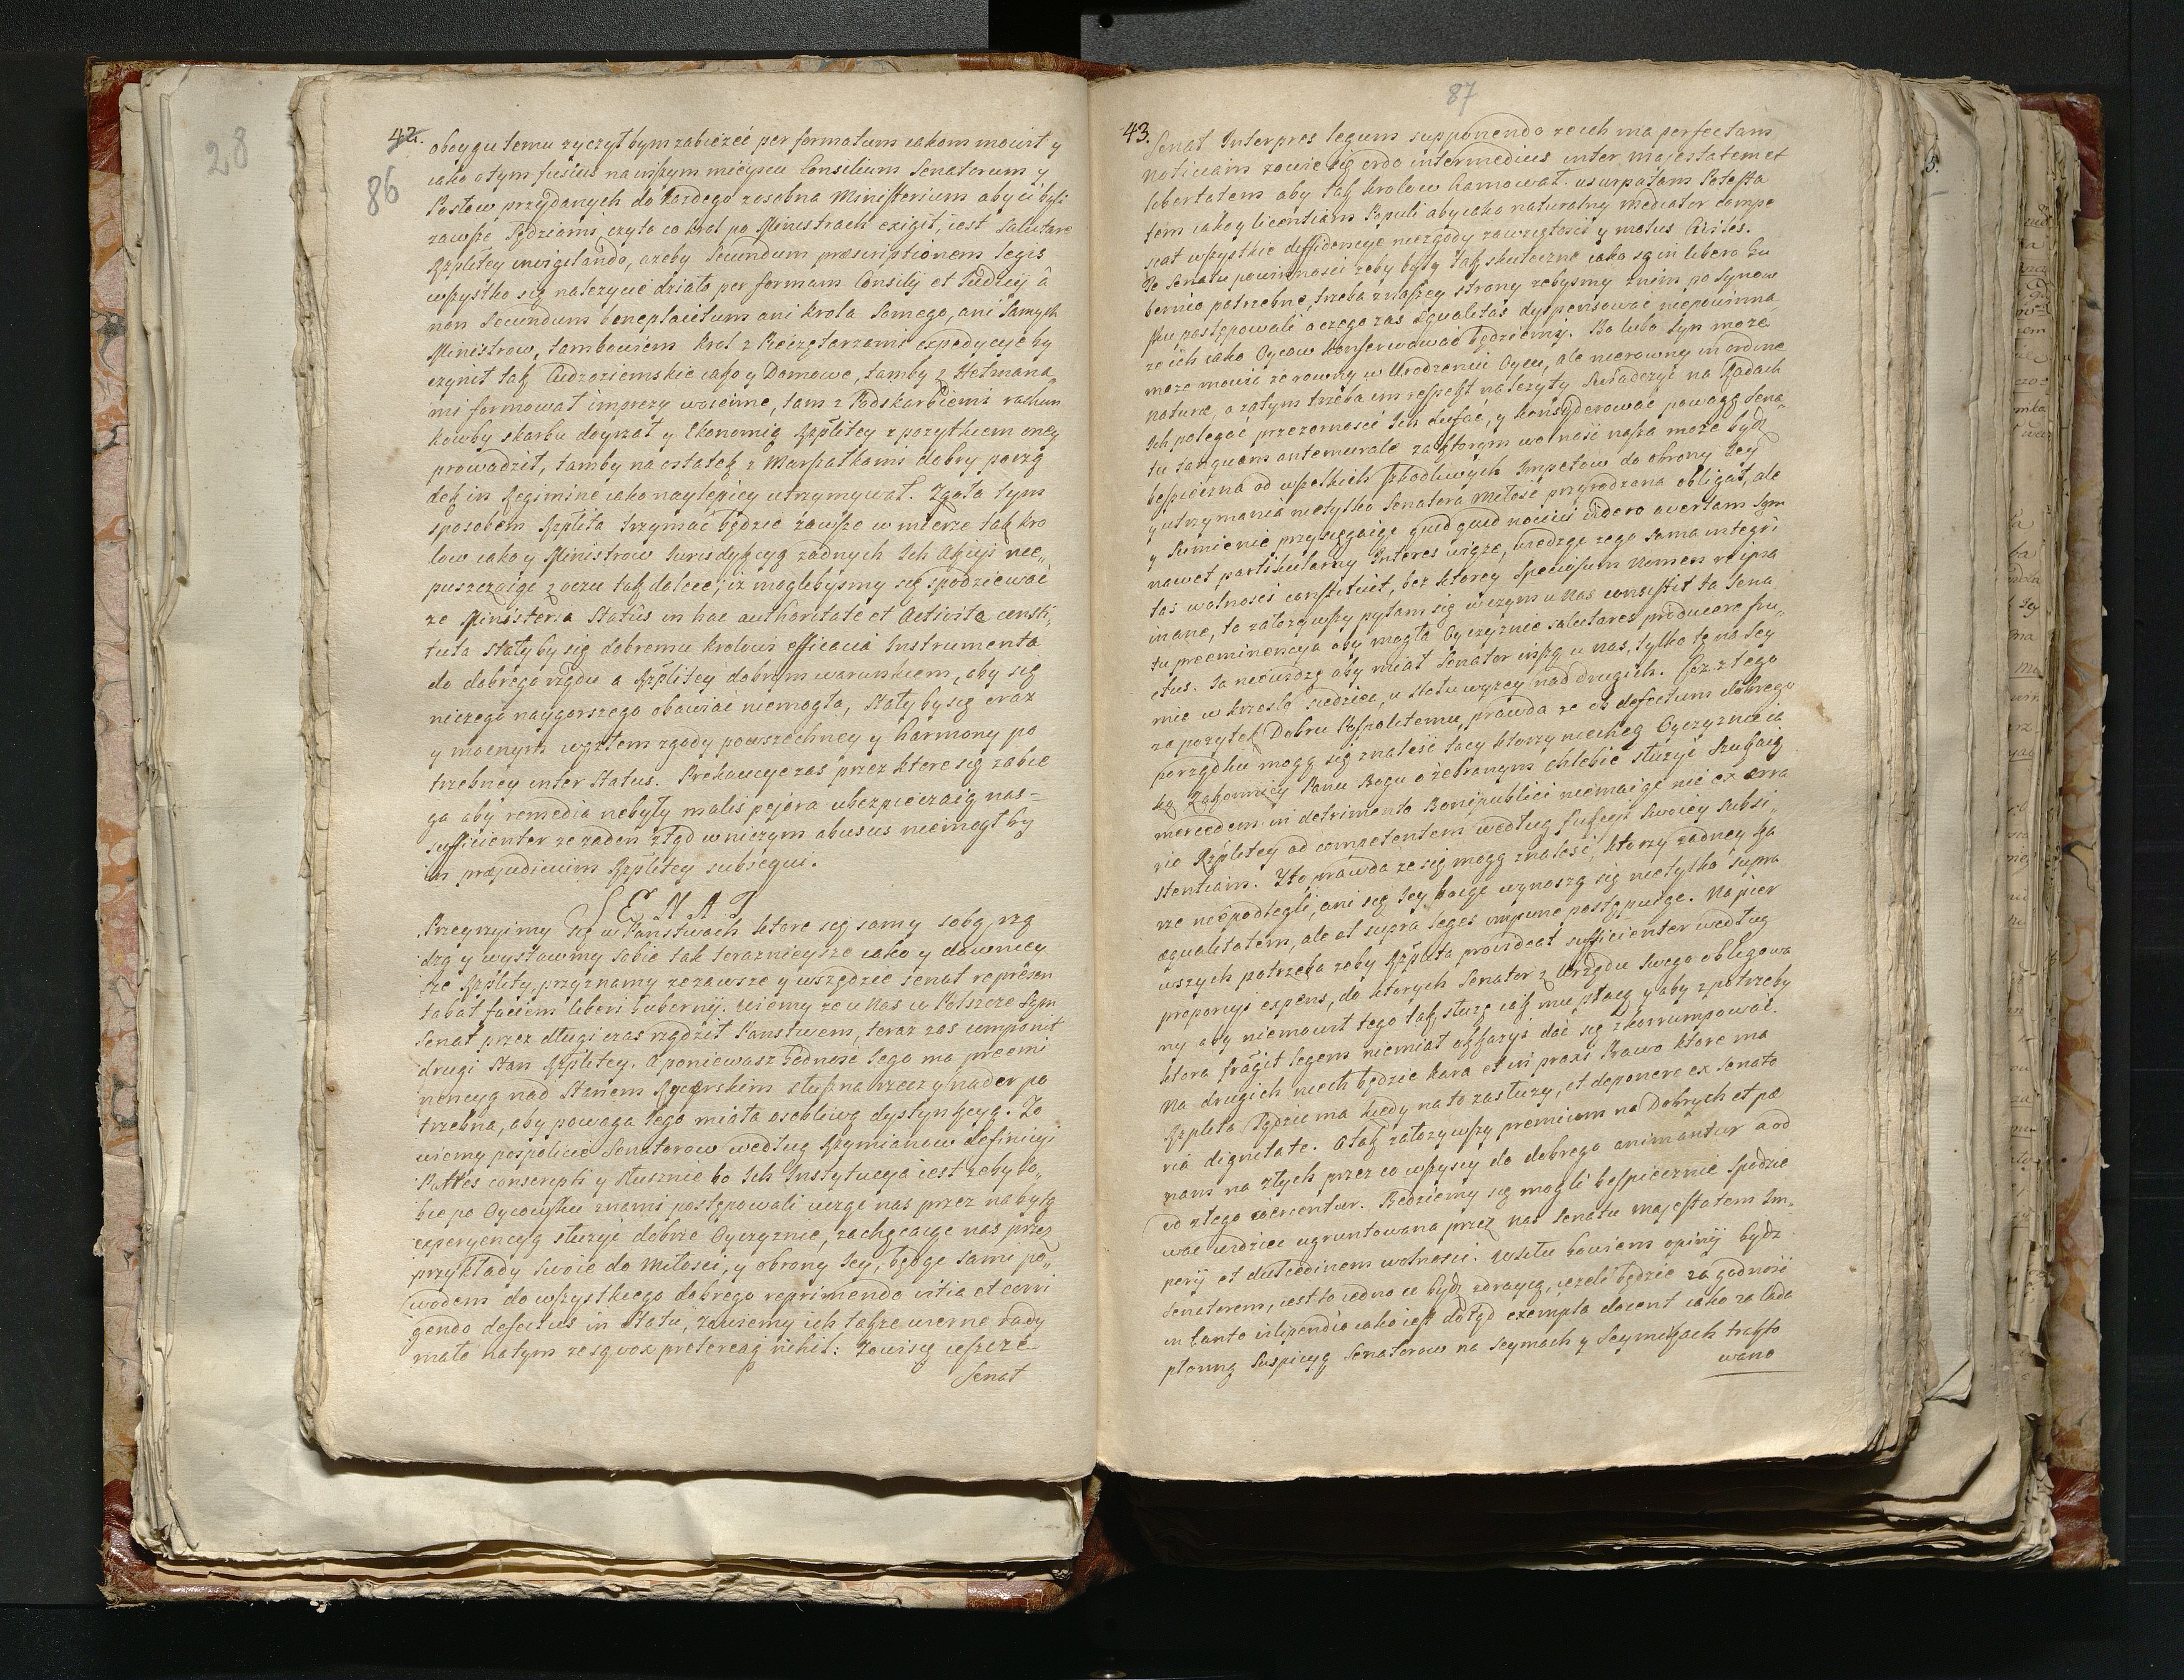 28
42.
86
oboygu temu zyczył bym zabieżeć per formatum iakom mowił y
iako o tym fusius na inszym mieyscu Consilium Senatorum y
Posłow przydanych do każdego zosobna Ministerium aby ci byli
zawsze Sędziami, czyto co Krol po Ministrach exigit, iest Salutare
Rzpltey invigilando, azeby Secundum præscriptionem Legis
wszystko się należycie działo per formam Consilij et Iudicij à
non Secundum beneplacitum ani Krola Samego, ani Samych
Ministrow, tambowiem Krol z Pieczętarzami expedycyje by
czynił tak Cudzoziemskie iako y Domowe, tamby z Hetmana„
mi formował imprezy woienne, tam z Podskarbiemi rachun
kowby skarbu doyrzał y Ekonomią Rzpltey z pozytkiem oney
prowadził, tamby na ostatek z Marszałkami dobry porzą
dek in Regimine iako naylepiey utrzymywał. Zgoła tym
sposobem Rzplta trzymać będzie zawsze w mierze tak Kro
low iako y Ministrow Iurisdykcyą zadnych Ich akcyi nie„
puszczaiąc z oczu tak dalece, iż moglibysmy się spodziewać
ze Ministeria Statûs in hac authoritate et Activita consti„
tuta stałyby się dobremu Krolowi efficacia Instrumenta
do dobrego rządu a Rzpltey dobrym warunkiem, aby się
niczego naygorszego obawiać niemogła, stały by się oraz
y mocnym węzłem zgody powszechney y harmony po
trzebney inter Status. Prekaucye zas przez ktore się zabie
ga aby remedia nebyły malis pejora ubezpieczaią nas=
sufficienter ze zaden ztąd w niczym abusus niemogł by
in præjudicium Rzpltey subsequi.
SENAT
Przeyrzyimy się w Panstwach ktore się samy sobą rzą
dzą y wystawmy sobie tak teraznieysze iako y dawniey
sze Rzplty, przyznamy ze zawsze y wszędzie senat represen
tabat faciem liberi Gubernij. wiemy ze u Nas w Polszcze Sam
Senat przez długi czas rządził Panstwem, teraz zas componit
drugi Stan Rzpltey. A poniewasz Godnosc Iego ma preemi
nencyą nad Stanem Rycerskim słuszna rzecz y nader po
trzebna, aby powaga Iego miała osobliwą dystynkcyą. Zo
wiemy pospolicie Senatorow według Rzymianow definicyi
Patres conscripti y słusznie bo Ich Instytucya iest zeby So„
bie po Oycowsku znami postępowali ucząc nas przez nabytą
experyencyą służyć dobrze Oyczyznie, zachęcaiąc nas przez
przykłady Swoie do Miłosci, y obrony Iey, będąc Sami po„
wodem do wszystkiego dobrego reprimendo vitia et corri
gendo defectus in statu, zowiemy ich także wierne rady
mało na tym ze są vox pretereaq nihil: Zowią się ieszcze
Senat
87
43.
Senat Interpres legum supponendo ze ich ma perfectam
notitiam zowie się ordo intermedius inter majestatem et
libertatem aby tak Krolow hamował usurpatam Potesta
tem iako y licentiam Populi aby iako naturalny Mediator compe
scat wszystkie diffidencye niezgody zawziętosci y motus Civiles.
Te Senatu powinnosci zeby były tak skuteczne iako są in libero Gu
bernio potrzebne, trzeba znaszey strony zebysmy znim po Synow
sku postępowali à czego zas Equalitas dyspensowac niepowinna
ze ich iako Oycow konserwować będziemy. Bo lubo Syn moze
moze mowić ze rowny w Urodzeniu Oycu, ale nierowny in ordine
naturæ, a zatym trzeba im respekt nalezyty Swiadczyć na Radach
Ich polegać przezornosci Ich dufać, y konsyderować powagę Sena„
tu tanquam antemurale za ktorym wolnosć nasza może bydź
bespieczna od wszelkich szkodliwych Impetow do obrony Iey
y utrzymania nietylko Senatora Miłosć przyrodzona obligat, ale
y Sumienie przysięgaiąc quid quid nocivi videro avertam Sam
nawet partikularny Interes wiąże, wiedząc zego Sama integri
tas wolnosci constituit, bez ktorey Specissum Nomen re ipsa
inane, to założywszy pytam się w czym u Nas consistit ta Sena
tu preeminencya aby mogła Oyczyznie salutares producere fru„
ctus. Ia niewidzę aby miał Senator inszą u nas, tylko tę na Sey
mie w krzesle siedziec, u stołu wyzey nad drugich. Coz z tego
za pozytek Dobru Pospolitemu, prawda ze ob defectum dobrego
porządku mogą się znalesć tacy ktorzy niechcą Oyczyznie ia
ko Zakonnicy Panu Bogu o żebranym chlebie służyć szukaią
mercedem in detrimento Boni publici niemaiąc nic ex ærra
rio Rzpltey ad competentem według funkcyi Swoiey Subsi„
stentiam. Ito prawda ze się mogą znalesc, ktorzy zadney Ka
rze niepodlegli, ani się Iey boiąc wynoszą się nietylko supra
æqualitatem, ale et supra leges impune postępuiąc. Na pier
wszych potrzeba zeby Rzplta provideat sufficienter według
proporcyi expens, do ktorych Senator z Urzędu Swego obligowa
ny aby niemowił tego tak służę iak mu płacą y aby z potrzeby
ktora frâgit legem niemiał okkazyi dać się zkorrumpować.
Na drugich niech będzie kara et in praxi Prawo ktore ma
Rzplta Sędzic ma kiedy na to zasłuzy, et deponere ex Senato
ria dignitate. A tak założywszy premium na Dobrych et pæ
nam na złych przez co wszyscy do dobrego animantur a od
od złego coërcentur. Będziemy się mogli bespiecznie spodzie
wac widziec ugruntowana przez nas Senatu majestatem Im„
perij et dulcedinem wolnosci. Wielu bowiem opinij bydz
Senatorem, iest to iedno co bydz zdraycą, iezeli będzie ta godnosć
in tanto vilipendio iako iest dotąd exempla docent iako za lada
płonną Suspicyą Senatorow na Seymach y Seymikach trakto
wano
5.